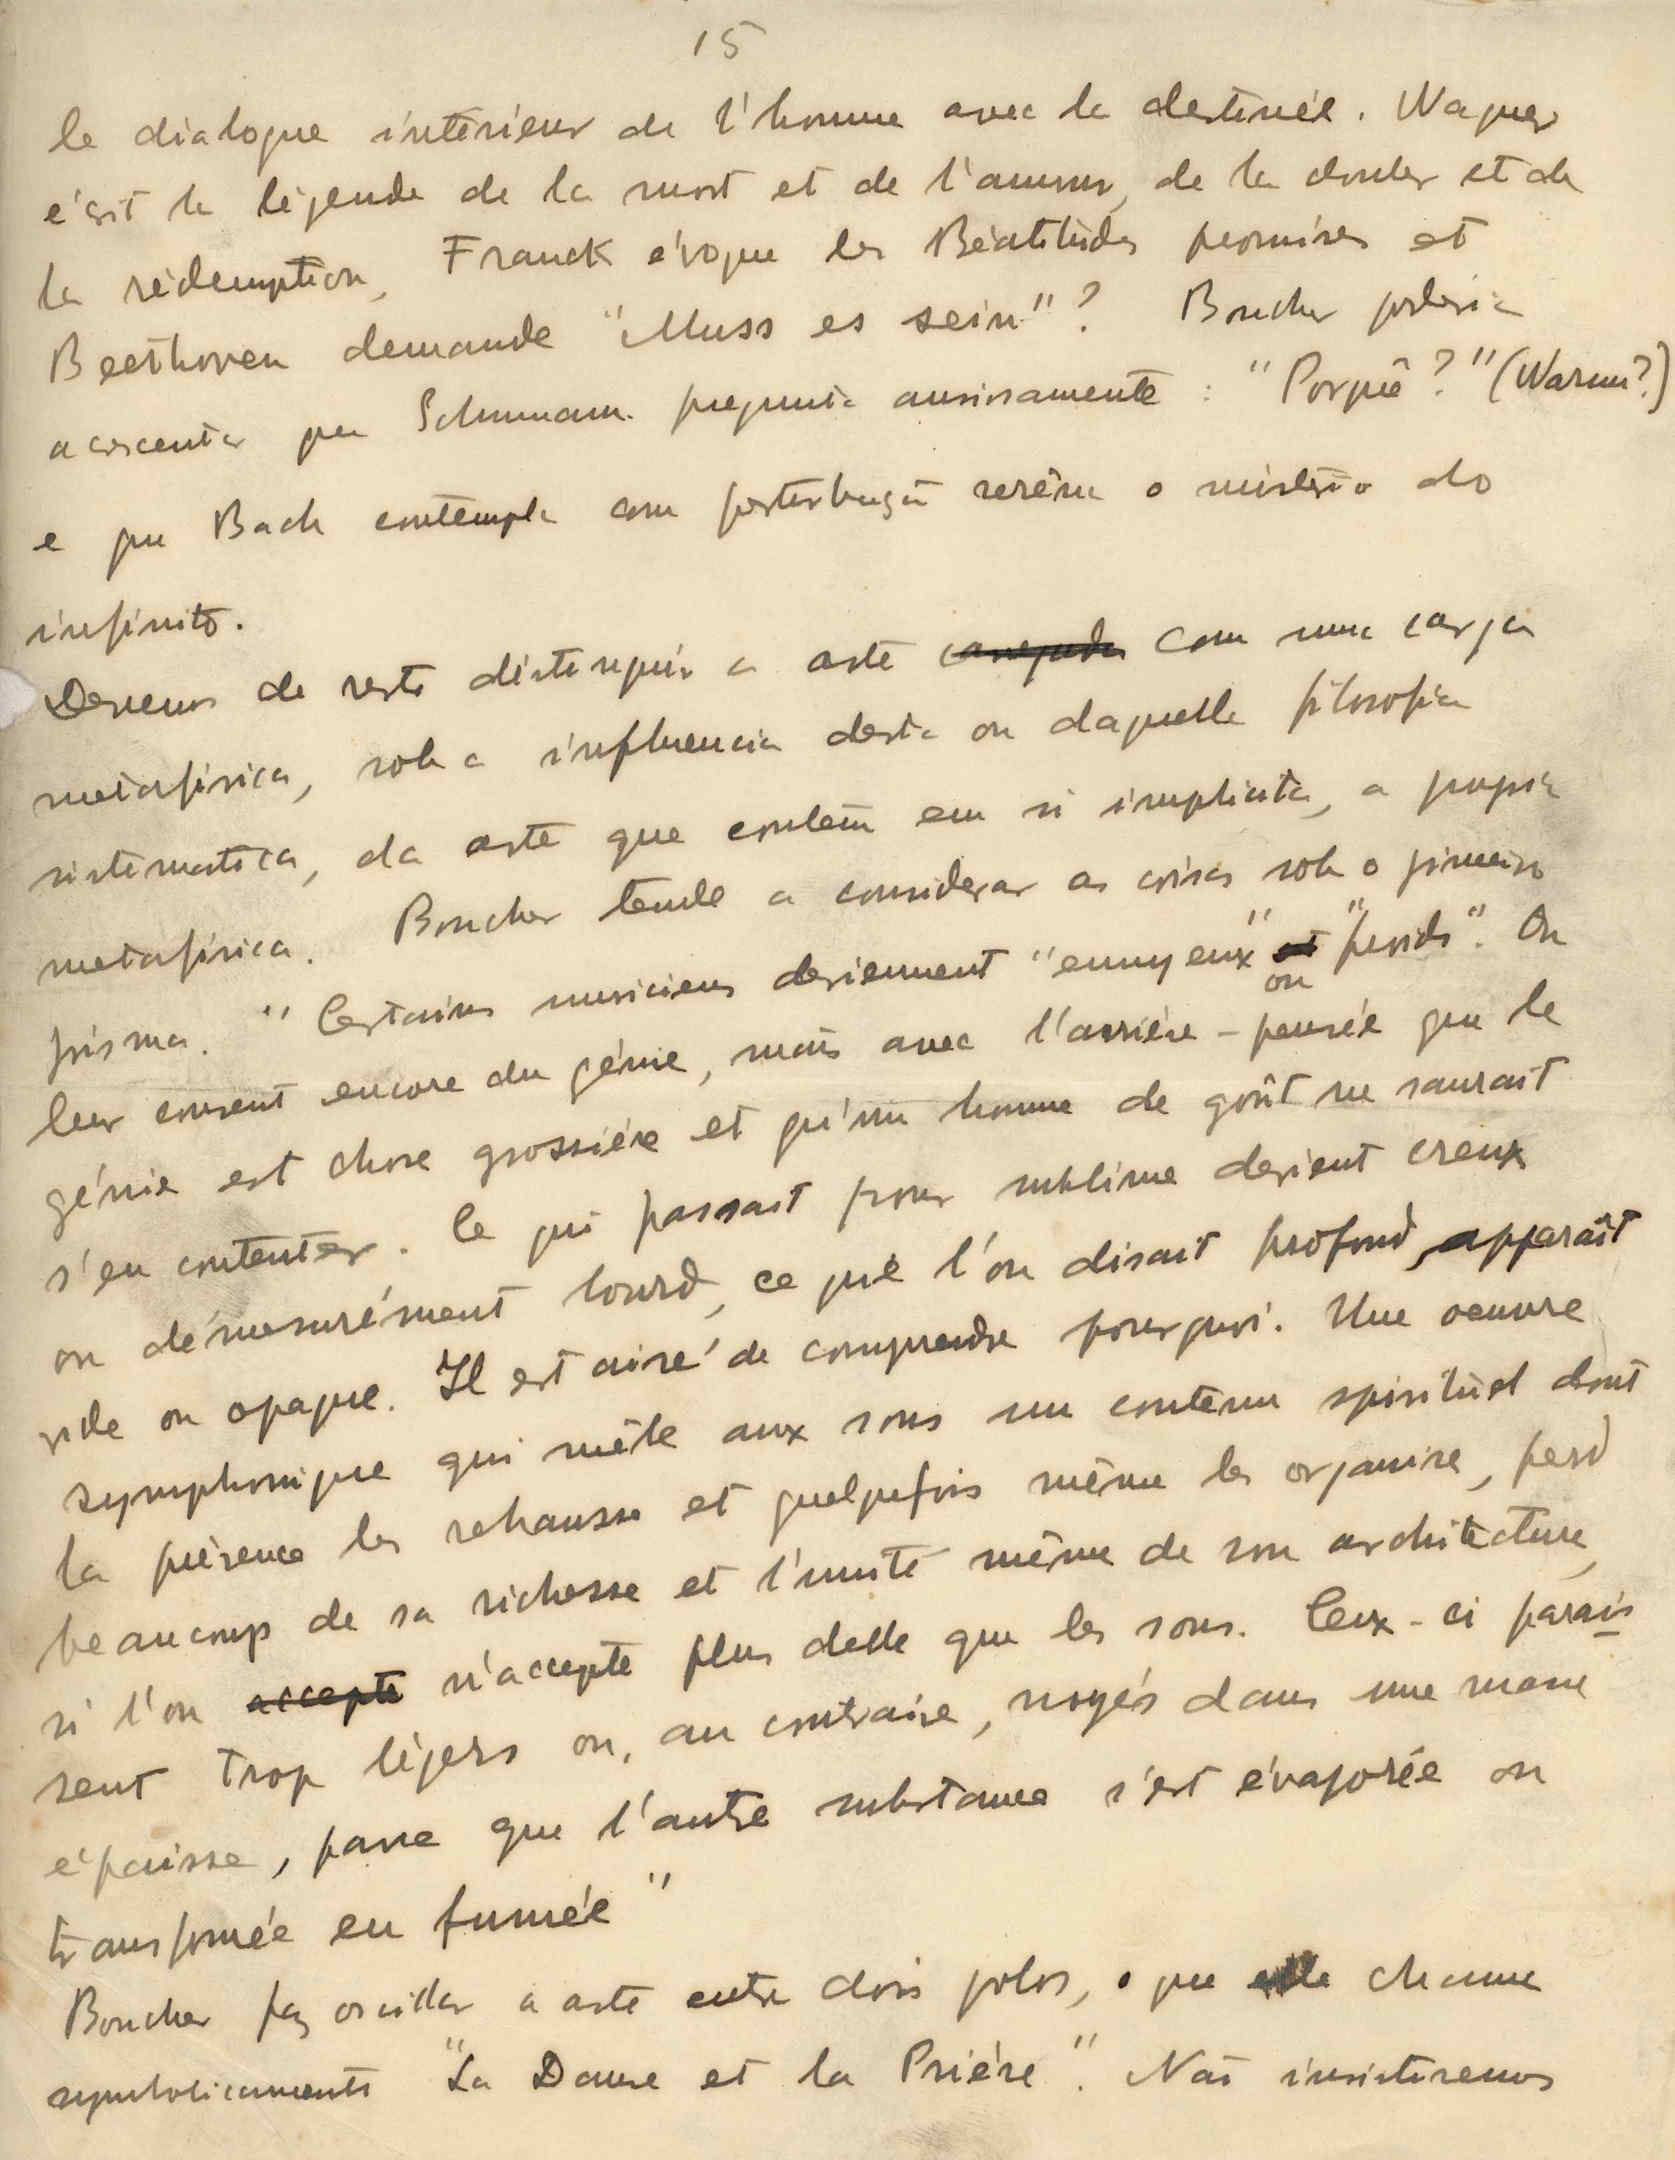 15
le dialogue intérieur de l'homme avec la destinée. Wagner
écrit la légende de la mort et de l'amour, de la douler et de
la rédemption, Franck évoque les Béatitudes promises et
Beethoven demande "Muss es sein"? Boucher poderia
acrescentar que Schumann pregunta ansiosamente: "Porquê?" (Warum?)
e que Bach contempla com perturbação serêna o mistério do
infinito.
Devemos de resto distinguir a arte carregada com uma carga
metafísica, sob a influencia desta ou daquella filosofia
sistematica, da arte que contêm em si implicita, a propria
metafísica. Boucher tende a considerar as coisas sob o primeiro
prisma. "Certains musiciens deviennent "ennuyeux" et ou "froids". On
leur consent encore du génie, mais avec l'arrière-pensée que le
génie est chose grossière et qu'un homme de goût ne saurait
s'en contenter. Ce qui passait pour sublime devient creux
ou démesurément lourd, ce que l'on disait profond, apparaît
vide ou opaque. Il est aisé de comprendre pourquoi. Une oeuvre
symphonique qui mêle aux sons un contenu spirituel dont
la présence les rehausse et quelquefois même les organise, perd
beaucoup de sa richesse et l'unité même de son architecture,
si l'on accepte n'accepte plus delle que les sons. Ceux-ci parais
sent trop légers ou, au contraire, noyés dans une masse
épaisse, parce que l'autre substance s'est évaporée ou
transformée en fumée"
Boucher faz oscillar a arte entre dois polos, o que elle chama
symbolicamente "La Danse et la Prière". Não insistiremos